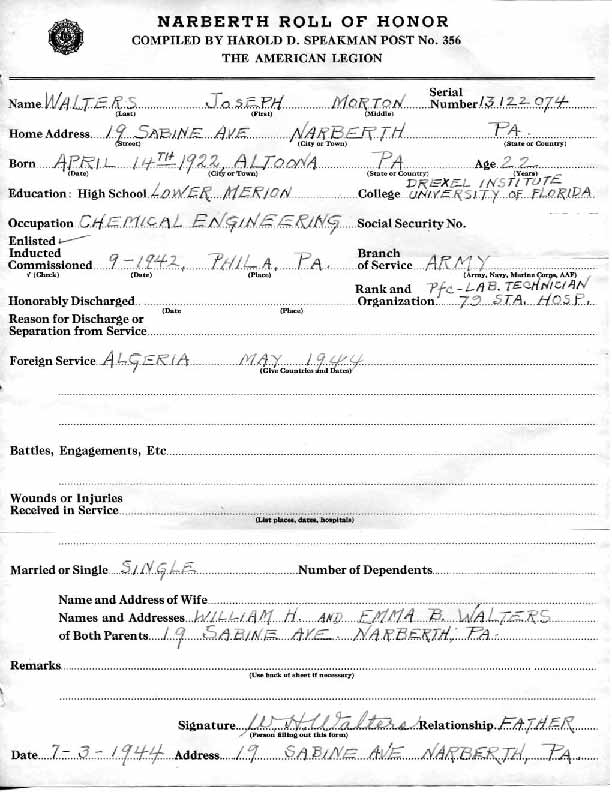 NARBERTH ROLL OF HONOR
COMPILED BY HAROLD D. SPEAKMAN POST No. 356
THE AMERICAN LEGION
Name WALTERS JOSEPH MORTON Serial Number 13122074
(Last) (First) (Middle)
Home Address 19 SABINE AVE NARBERTH PA.
(Street) (City or Town) (State or Country)
Born APRIL 14TH 1922, ALTOONA PA Age 22
(Date) (City or Town) (State or Country) (Years)
DREXEL INSTITUTE
Education: High School LOWER MERION College UNIVERSITY OF FLORIDA
Occupation CHEMICAL ENGINEERING Social Security No.
Enlisted ✓
Inducted Branch
Commissioned 9-1942, PHILA, PA. of Service ARMY
√ (Check) (Date) (Place) (Army, Navy, Marine Corps, AAF)
Rank and Pfc-LAB. TECHNICIAN
Honorably Discharged Organization 79 STA. HOSP.
(Date (Place)
Reason for Discharge or
Separation from Service
Foreign Service ALGERIA MAY 1944
(Give Countries and Dates)
Battles, Engagements, Etc
Wounds or Injuries
Received in Service
(List places, dates, hospitals)
Married or Single SINGLE Number of Dependents
Name and Address of Wife
Names and Addresses WILLIAM H. AND EMMA B. WALTERS
of Both Parents 19 SABINE AVE. NARBERTH, PA.
Remarks
(Use back of sheet if necessary)
Signature W H Walters Relationship FATHER
(Person filling out this form)
Date 7-3-1944 Address 19 SABINE AVE NARBERTH, PA.